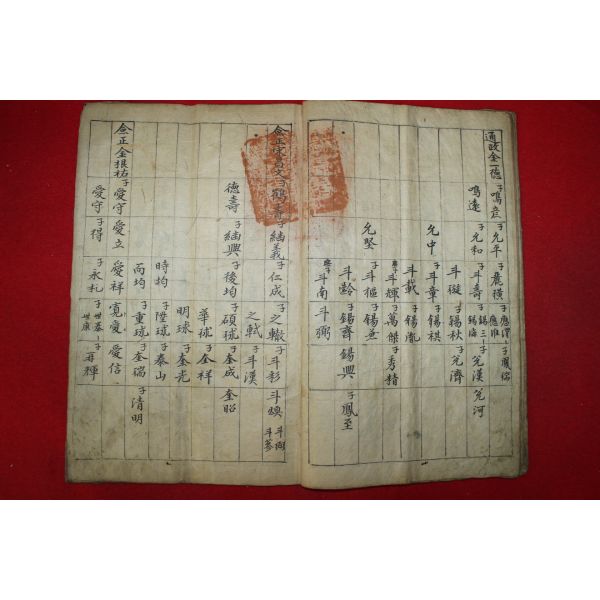 通政金一德 子鳴彦 子允平 子鹿橫 子應澤 子鳳瑞
應準
鳴遠 子允和 子斗壽 子錫三 子允漢 允河
錫海
斗礙 子錫秋 子允濟
允中 子斗章 子錫祺
斗載 子錫胤
斗輝 子萬傑 子秀精
允堅 子斗樞 子錫無
斗齡 子錫齊 錫興 子鳳至
斗南 子斗弼
僉正 子鶴壽 子緬義 子仁成 子之轍 子斗彩 斗煥
之軾 子斗漢
德壽 子緬興 子後均 子碩球 子奎成 奎昭
華球 子奎祥
明球 子奎光
時均 子陞球 子泰山
而均 子重球 子奎瑞 子清明
僉正金振祐 子愛守 愛立 愛祥 寬愛 愛信
愛守 子得 子永札 子世泰 子再輝
世康